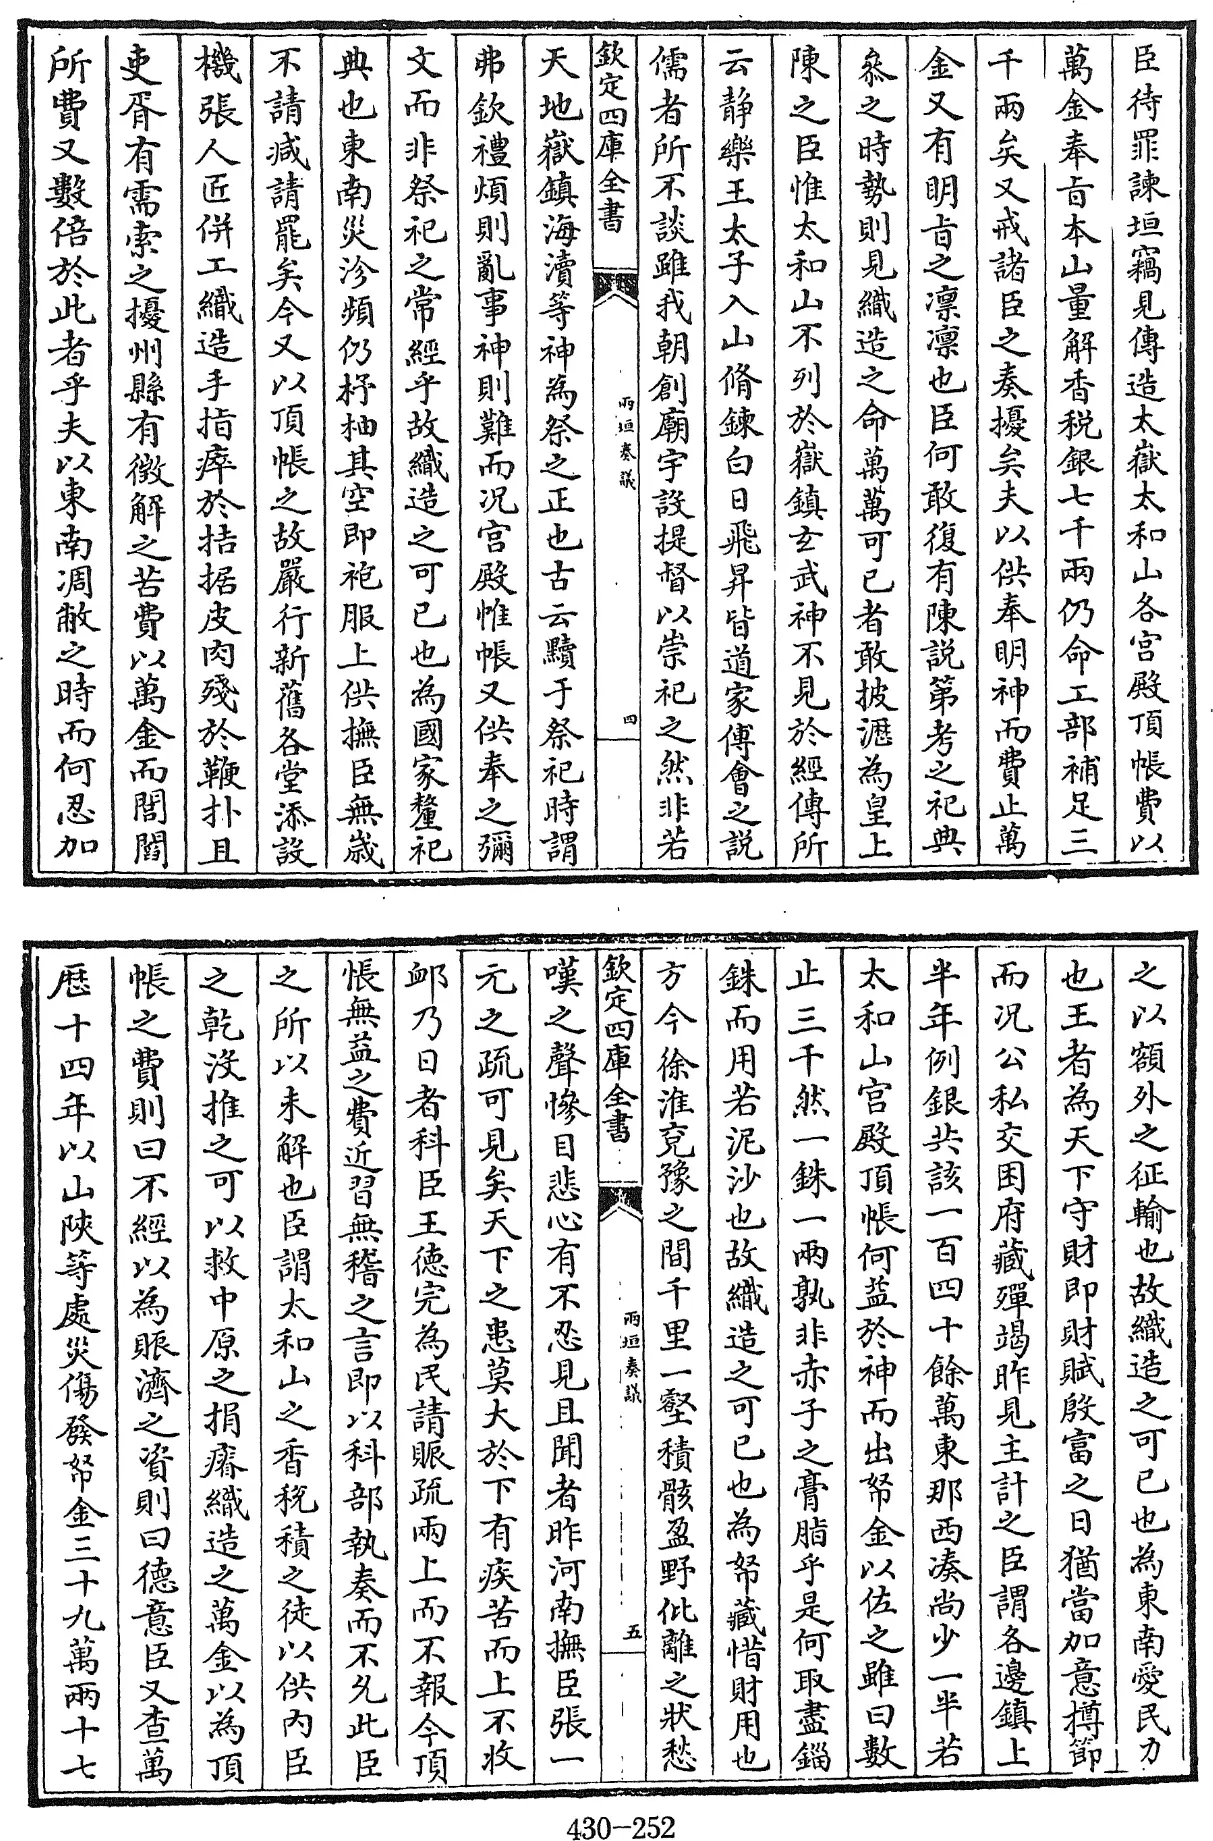 臣待罪諫垣竊見傳造太嶽太和山各宫殿頂帳費以
萬金奉旨本山量解香税銀七千兩仍命工部補足三
千兩矣又戒諸臣之奏擾矣夫以供奉明神而費止萬
金又有明旨之凛凛也臣何敢復有陳説第考之祀典
叅之時勢則見織造之命萬萬可已者敢披瀝為皇上
陳之臣惟太和山不列於嶽鎮玄武神不見於經傳所
云静樂王太子入山脩鍊白日飛昇皆道家傅會之説
儒者所不談雖我朝創廟宇設提督以崇祀之然非若
欽定四庫全書
兩垣奏議
四
天地嶽鎮海瀆等神為祭之正也古云黷于祭祀時謂
弗欽禮煩則亂事神則難而况宫殿帷帳又供奉之彌
文而非祭祀之常經乎故織造之可已也為國家釐祀
典也東南災沴頻仍杼柚其空即袍服上供撫臣無歳
不請减請罷矣今又以頂帳之故嚴行新舊各堂添設
機張人匠併工織造手指瘁於拮据皮肉殘於鞭扑且
吏胥有需索之擾州縣有徴解之苦費以萬金而閭閻
所費又數倍於此者乎夫以東南凋敝之時而何忍加
之以額外之征輸也故織造之可已也為東南愛民力
也王者為天下守財即財賦殷富之日猶當加意撙節
而况公私交困府藏殫竭昨見主計之臣謂各邊鎮上
半年例銀共該一百四十餘萬東那西凑尚少一半若
太和山宫殿頂帳何益於神而出帑金以佐之雖曰數
止三千然一銖一兩孰非赤子之膏脂乎是何取盡錙
銖而用若泥沙也故織造之可已也為帑藏惜財用也
方今徐淮兖豫之間千里一壑積骸盈野仳離之狀愁
欽定四庫全書
兩垣奏議
五
嘆之聲慘目悲心有不忍見且聞者昨河南撫臣張一
元之疏可見矣天下之患莫大於下有疾苦而上不收
䘏乃日者科臣王德完為民請賑疏兩上而不報今頂
帳無益之費近習無稽之言即以科部執奏而不允此臣
之所以未解也臣謂太和山之香税積之徒以供内臣
之乾没推之可以救中原之捐瘠織造之萬金以為頂
帳之費則曰不經以為賑濟之資則曰德意臣又查萬
厯十四年以山陜等處災傷發帑金三十九萬兩十七
430-252